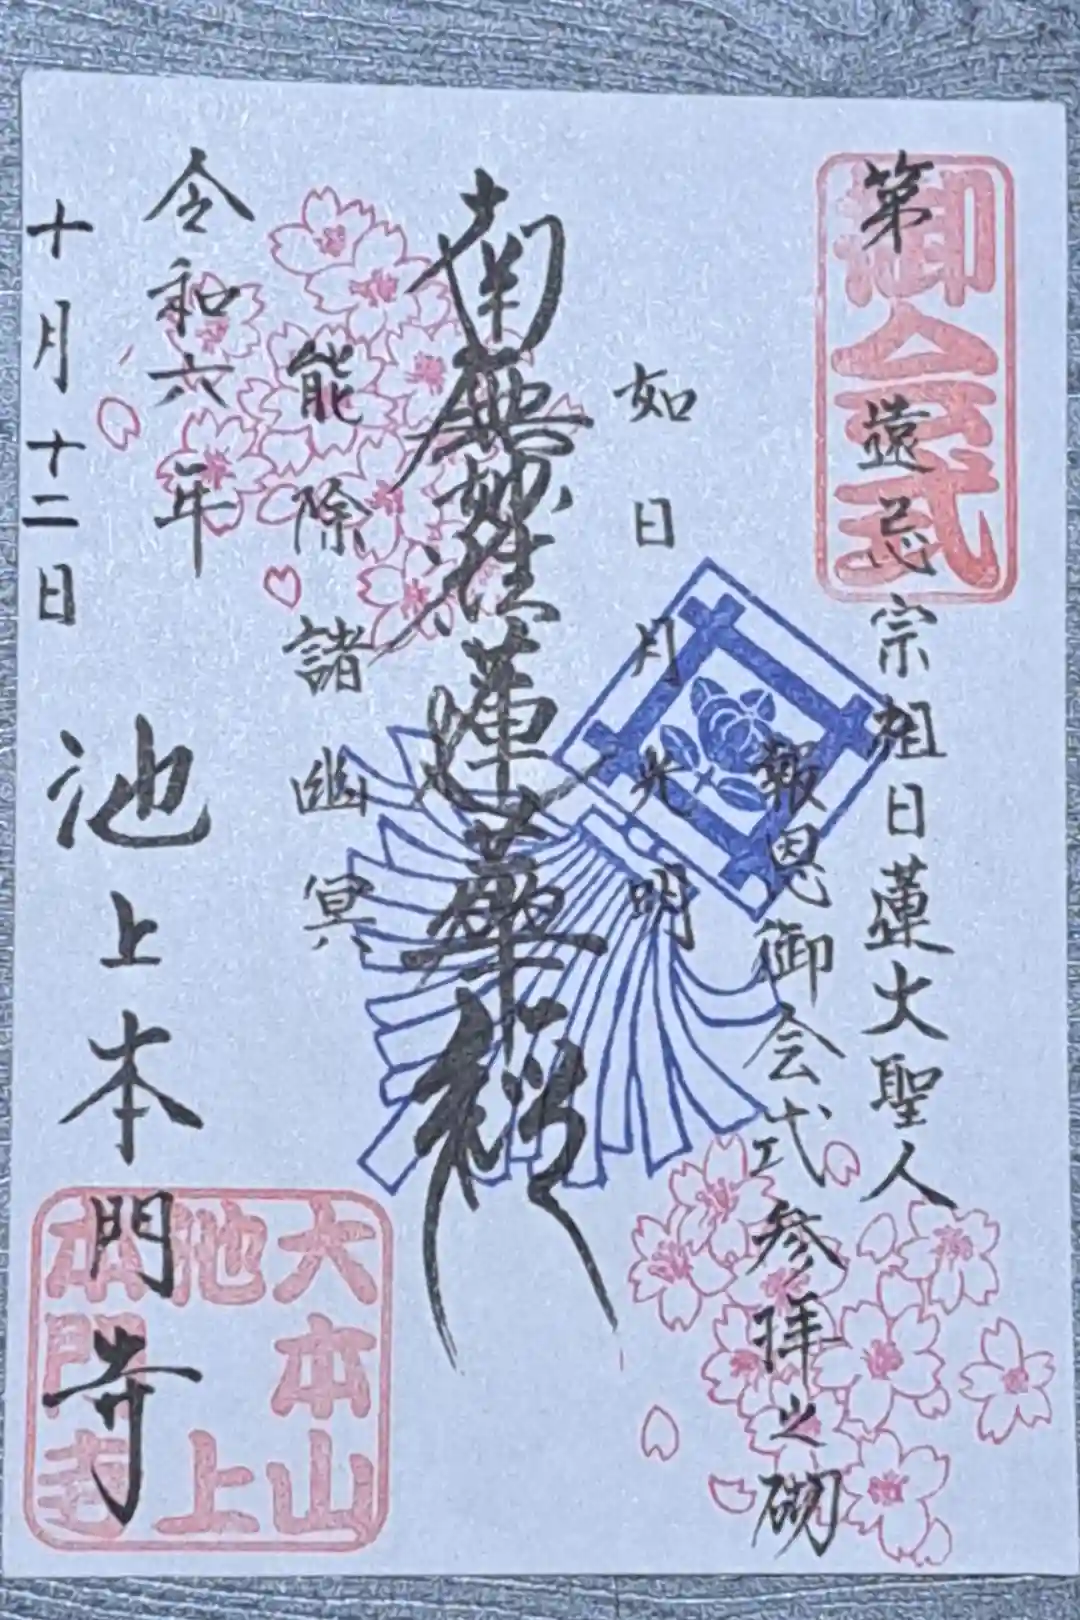 御会式
第 遠忌宗祖日蓮大聖人
報恩御会式参拝之砌
如日月光明
南無妙法蓮華経
能除諸幽冥
令和六年
十月十二日
池上本門寺
大本山
池上
本門寺